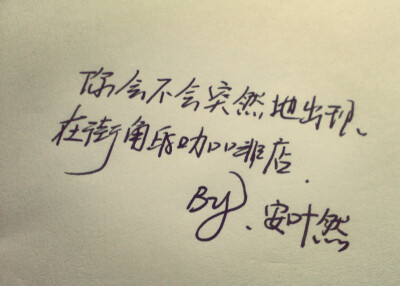 你会不会突然地出现、
在街角的咖啡店.
By、安叶然